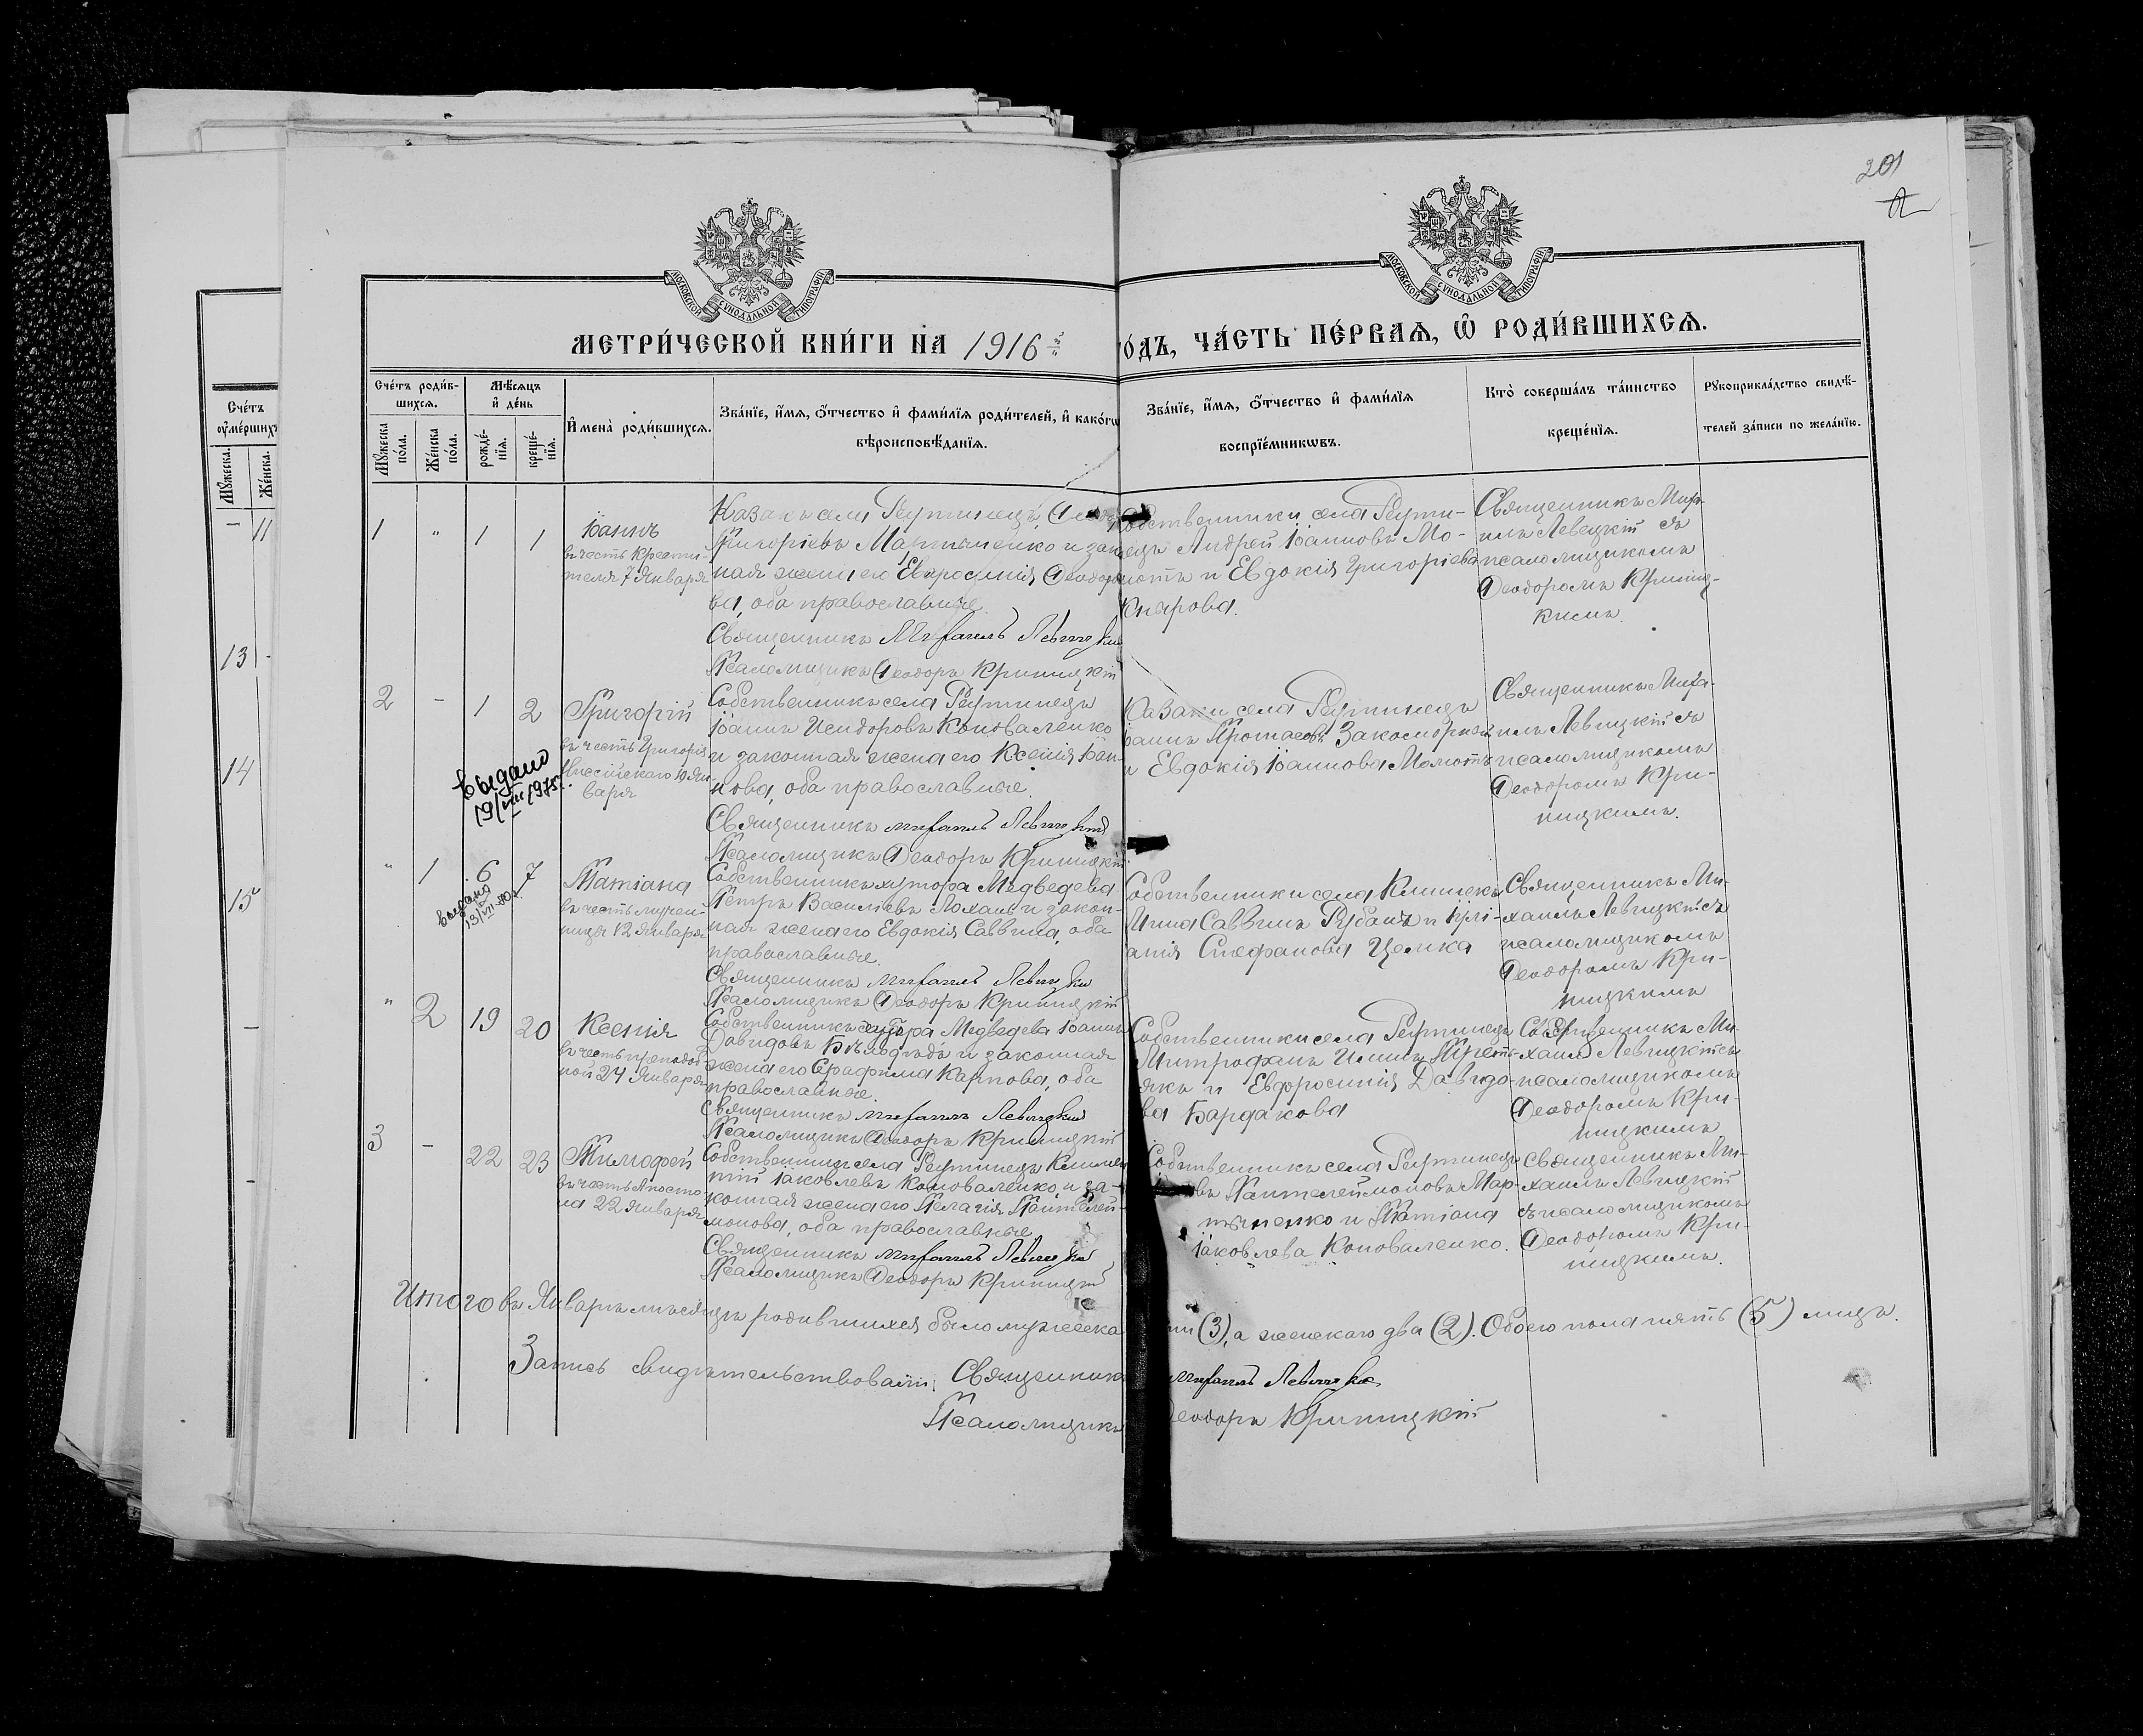 201
МОСКОВСКОЙ СѴНОДАЛЬНОЙ ТИПОГРАФІИ
МОСКОВСКОЙ СѴНОДАЛЬНОЙ ТИПОГРАФІИ
МЕТРИ́ЧЕСКОЙ КНИ́ГИ НА 1916 й
ГО́ДЪ, ЧА́СТЬ ПЕ́РВАЯ, Ѽ РОДИ́ВШИХСѦ.
Сче́тъ роди́в-
шихсѧ.
Мужеска по́ла.
Же́нска по́ла.
Мѣ́сѧцъ
и҆ де́нь
рожде́-
нїѧ.
креще́-
нїѧ.
И҆мена̀ роди́вшихсѧ.
Зва́нїе, и҆́мѧ, ѻ҆́тчество и҆ фами́лїѧ роди́телей, и҆ како́гѡ
вѣроисповѣ́данїѧ.
Зва́нїе, и҆́мѧ, ѻ҆́тчество и҆ фами́лїѧ
воспрїе́мникѡвъ.
Кто̀ соверша́лъ та́инство
креще́нїѧ.
Рукоприкла́дство свидѣ́-
телей за́писи по жела́нїю.
Сче́тъ
ѹ҆ме́ршихъ
Мужеска.
Же́нска.
- 11
13 -
14
15
-
-
1 " 1 1
Іоаннъ
въ честь Крести-
теля 7 Января
Казакъ села Реутинецъ,
Григоріевъ Мартыненко и закон
ная жена его Евфросинія Ѳеодоро
ва, оба православные.
Священникъ Михаилъ Левицкій
Псаломщикъ Ѳеодоръ Криницкій
Собственники села Реути-
нецъ Андрей Іоанновъ Мо-
лотъ и Евдокія Григоріева
Кнырова.
Священникъ Миха-
илъ Левицкій съ
псаломщикомъ
Ѳеодоромъ Криниц-
кимъ.
2 - 1 2
Григорій
въ честь Григорія
Нисскаго 10 Ян-
варя
выдано
19/VIII 1975г.
Собственникъ села Реутинецъ
Іоаннъ Исидоровъ Коноваленко
и законная жена его Ксенія Іоан-
нова, оба православные.
Священникъ Михаилъ Левицкій
Псаломщикъ Ѳеодоръ Криницкій
Казаки села Реутинецъ
Іоаннъ Протасовъ Закоморный
и Евдокія Іоаннова Молотъ
Священникъ Миха-
илъ Левицкій съ
псаломщикомъ
Ѳеодоромъ Кри-
ницкимъ.
" 1 6 7
Татіана
въ честь мучен-
ницы 12 Января
выдано
13/VII-80г.
Собственникъ хутора Медведева
Петръ Васильевъ Лохань и закон-
ная жена его Евдокія Саввина, оба
православные.
Священникъ Михаилъ Левицкій
Псаломщикъ Ѳеодоръ Криницкій
Собственники села Клишекъ
Илья Саввинъ Рубанъ и Іулі-
анія Стефанова Цепка
Священникъ Ми-
хаилъ Левицкій съ
псаломщикомъ
Ѳеодоромъ Кри-
ницкимъ
" 2 19 20
Ксенія
въ честь преподоб
ной 24 Января
Собственникъ хутора Медведева Іоаннъ
Давидовъ Бѣлодѣдъ и законная
жена его Серафима Карпова, оба
православные.
Священникъ Михаилъ Левицкій
Псаломщикъ Ѳеодоръ Криницкій
Собственники села Реутинецъ
Митрофанъ Ильинъ Трет-
якъ и Евфросинія Давидо-
ва Бардакова
Священникъ Ми-
хаилъ Левицкій съ
псаломщикомъ
Ѳеодоромъ Кри-
ницкимъ
3 - 22 23
Тимофей
въ честь Апосто-
ла 22 Января
Собственникъ села Реутинецъ Климен
тій Іаковлевъ Коноваленко и за-
конная жена его Пелагія Пантелей-
монова, оба православные
Священникъ Михаилъ Левицкій
Псаломщикъ Ѳеодоръ Криницкій
Собственникъ села Реутинецъ
Пантелеймоновъ Мар-
тыненко и Татіана
Іаковлева Коноваленко.
Священникъ Ми-
хаилъ Левицкій
съ псаломщикомъ
Ѳеодоромъ Кри-
ницкимъ.
Итого въ Январѣ мѣсяцѣ родившихся было мужеска
три (3), а женскаго два (2). Обоего пола пять (5) лицъ.
Запись свидѣтельствовали: Священникъ
Михаилъ Левицкій
Псаломщикъ
Ѳеодоръ Криницкій